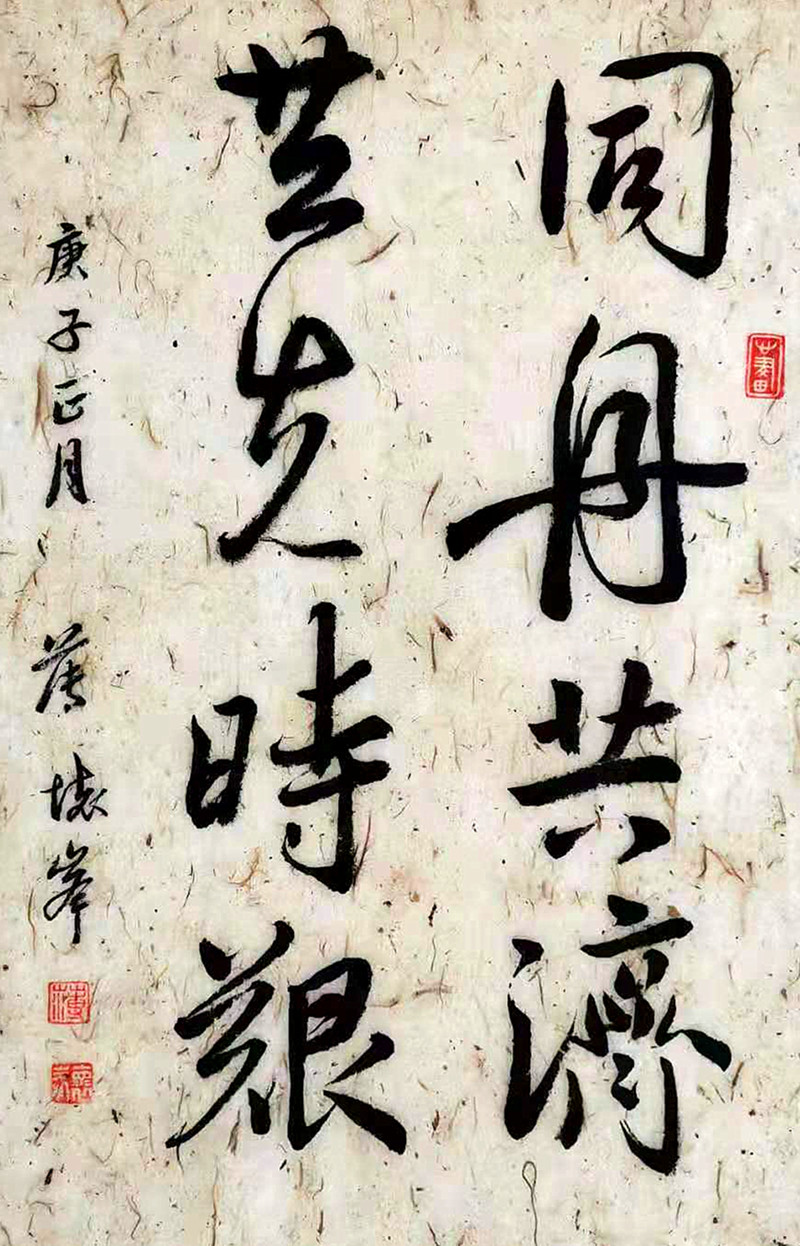 同舟共濟
共克時艱
庚子正月 薄懷峯